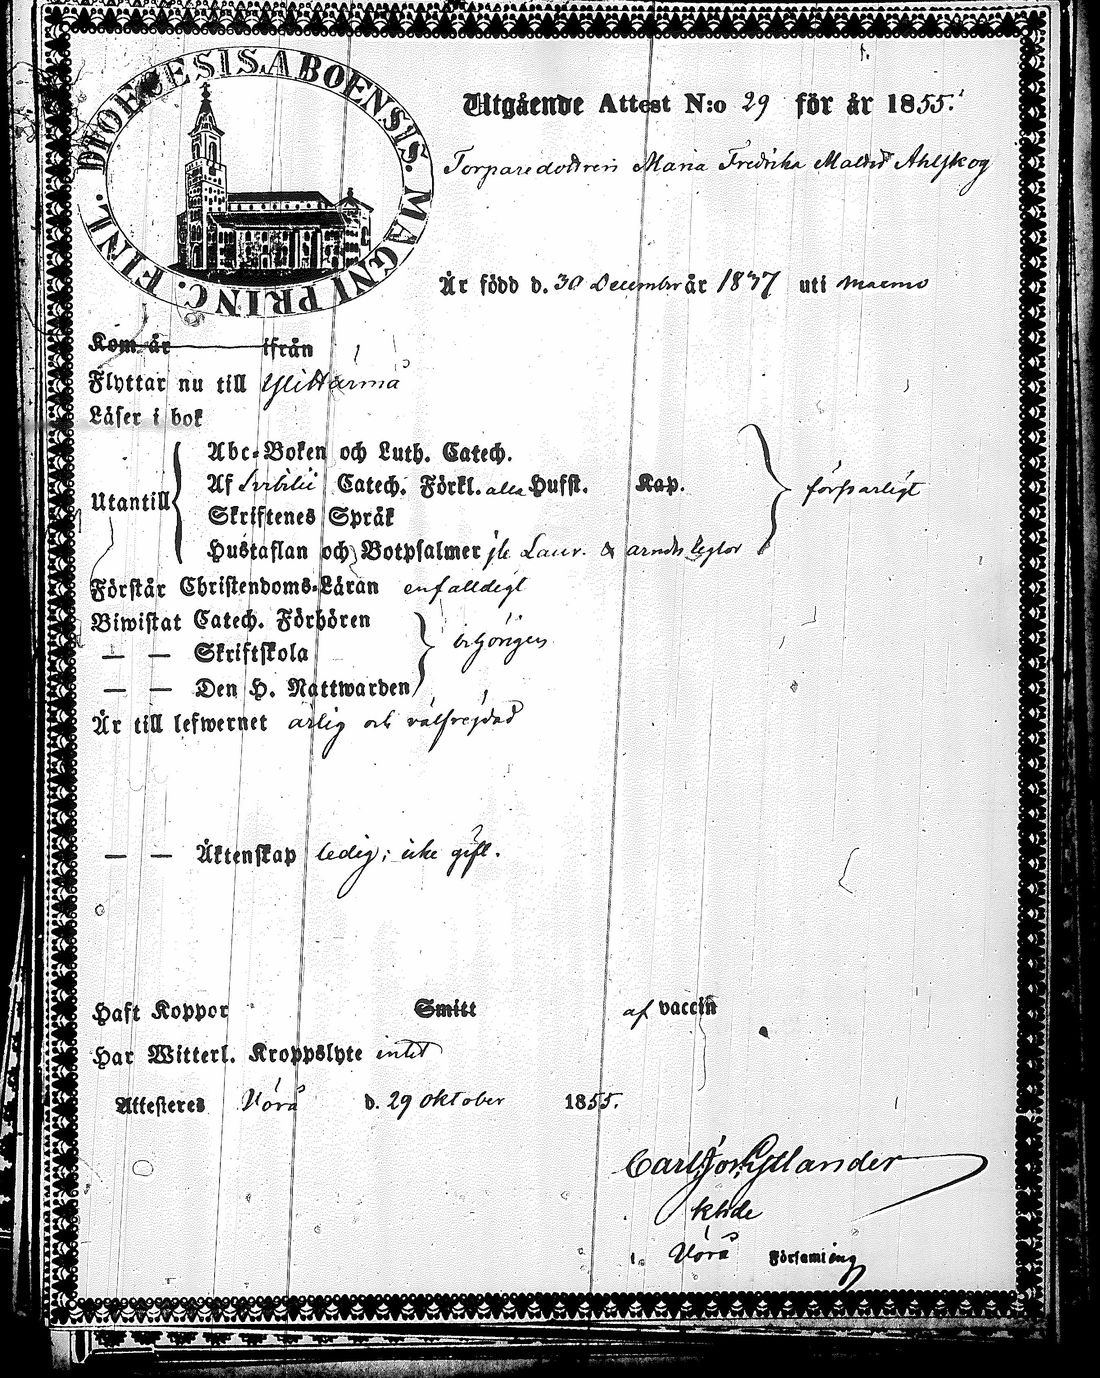 DIOECESIS ABOENSIS. MAGNI PRINC. FINL.
Utgående Attest N:o 29 för år 1855.
Torparedottren Maria Fredrika Ahlskog
Är född d. 30 December år 1837 uti
Kom år ifrån
Flyttar nu till Ylihärmä
Läser i bok
Abc-Boken och Luth. Catech.
Af Svebilii Catech. Förkl. alla Hufst. Kap.
Utantill
försvarligt
Skriftenes Språk
Hustaflan och Botpsalmer jte Laur. &
Förstår Christendoms-Läran enfalldigt
Biwistat Catech. Förhören
— — Skriftskola
behörigen
— — Den H. Nattwarden
Är till lefwernet ärlig och välfrejdad
— — Äktenskap ledig; icke gift.
Haft Koppor Smitt af vaccin
Har Witterl. Kroppslyte intet
Attesteres Vörå d. 29 oktober 1855.
Carl Gyllander
i Vörå Församling